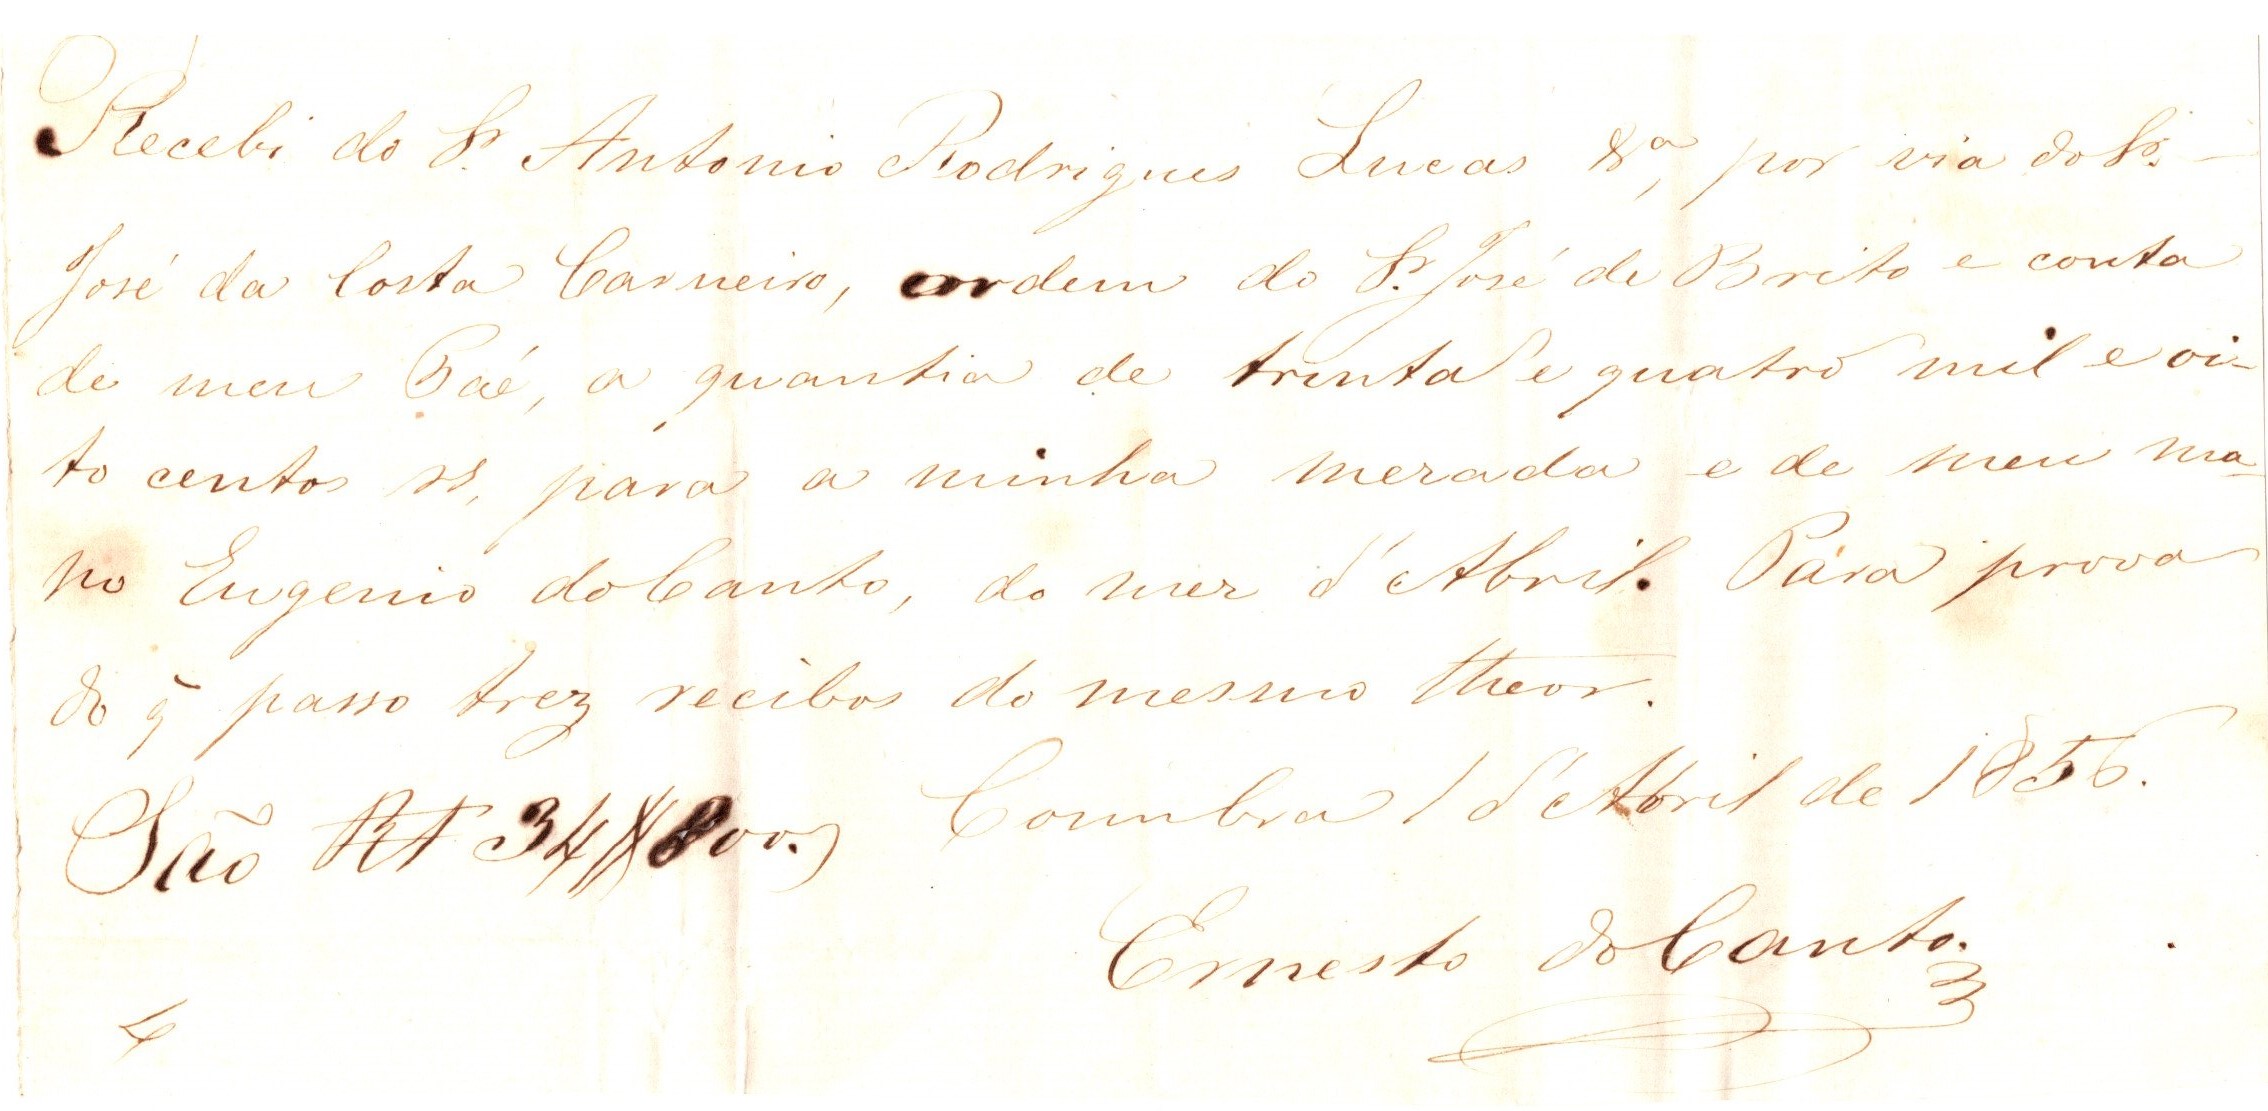 Recebi do Sr. Antonio Rodrigues Lucas &ª, por via do Sr.
José da Costa Carneiro, ordem do Sr. José de Brito e conta
de meu Paé, a quantia de trinta e quatro mil e oi-
to centos rs, para a minha mezada e de meu ma-
no Eugenio do Canto, do mez d'Abril. Para prova
do q̃ passo trez recibos do mesmo theor.
São R$ 34$800. Coimbra 1 d'Abril de 1856.
Ernesto do Canto.